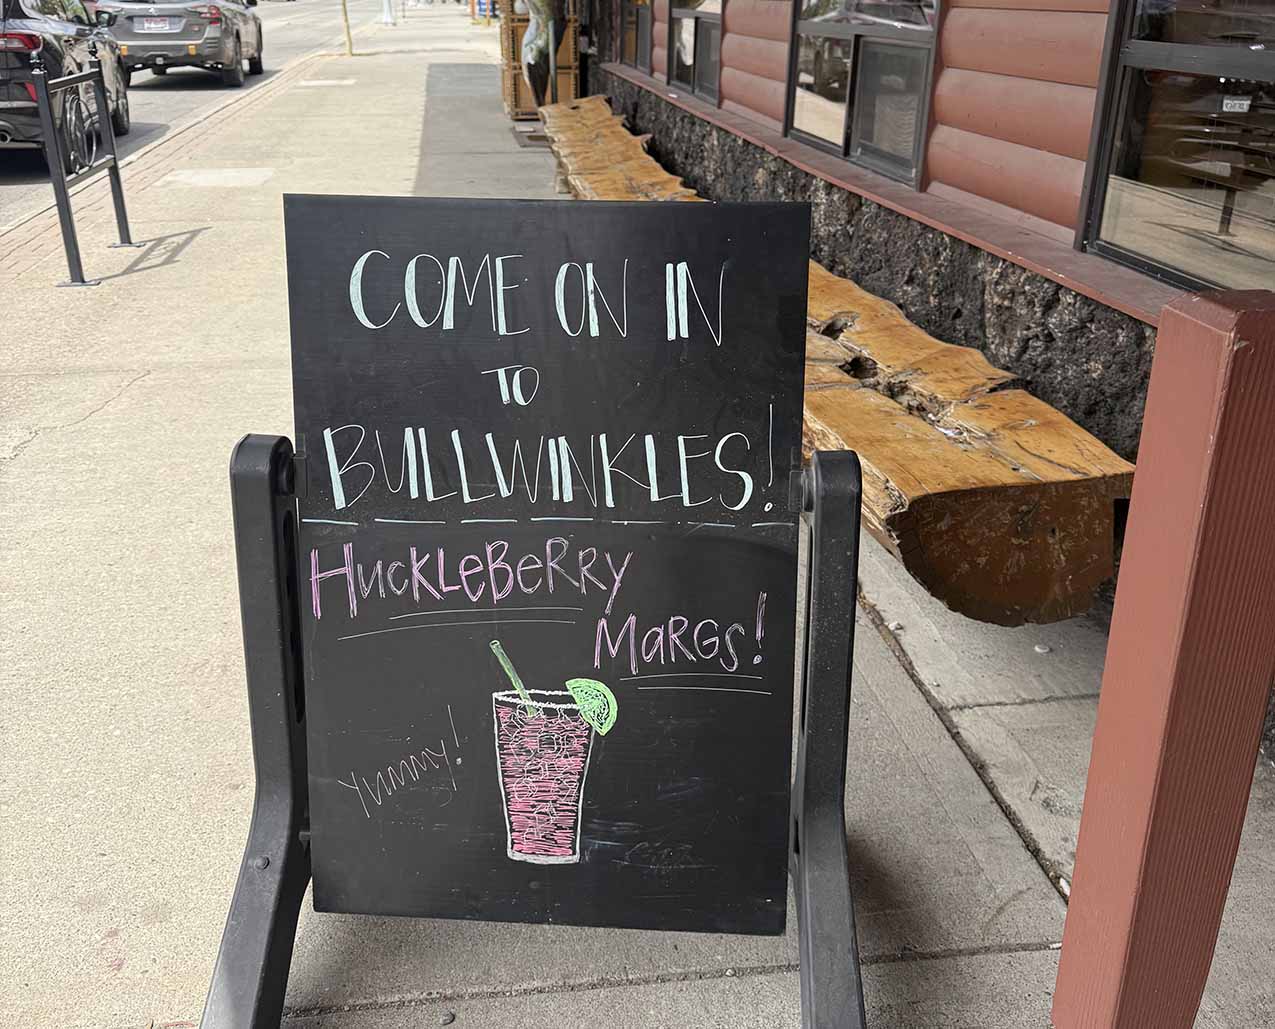 COME ON IN
TO
BULLWINKLES!
HUCKLEBERRY
MARGS!
YUMMY!